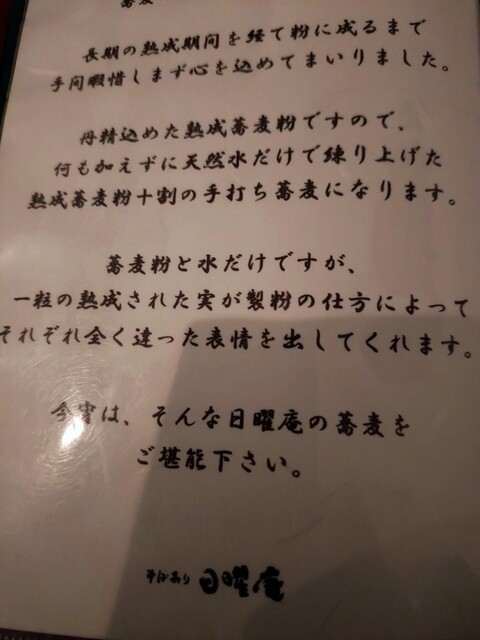 蕎麦
長期の熟成期間を経て粉に成るまで
手間暇惜しまず心を込めてまいりました。
丹精込めた熟成蕎麦粉ですので、
何も加えずに天然水だけで練り上げた
熟成蕎麦粉十割の手打ち蕎麦になります。
蕎麦粉と水だけですが、
一粒の熟成された実が製粉の仕方によって
それぞれ全く違った表情を出してくれます。
今宵は、そんな日曜庵の蕎麦を
ご堪能下さい。
そばあり 日曜庵